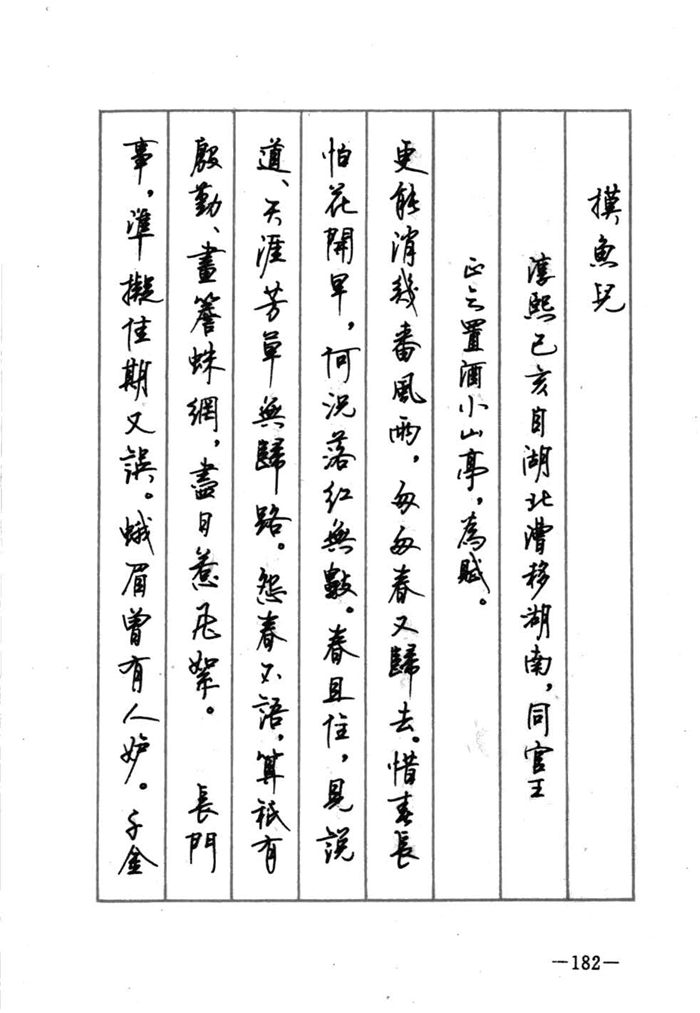 摸魚兒
淳熙己亥自湖北漕移湖南，同官王
正之置酒小山亭，為賦。
更能消幾番風雨，匆匆春又歸去。惜春長
怕花開早，何況落紅無數。春且住，見說
道、天涯芳草無歸路。怨春不語，算祇有
殷勤、畫簷蛛網，盡日惹飛絮。 長門
事，準擬佳期又誤。蛾眉曾有人妒。千金
—182—